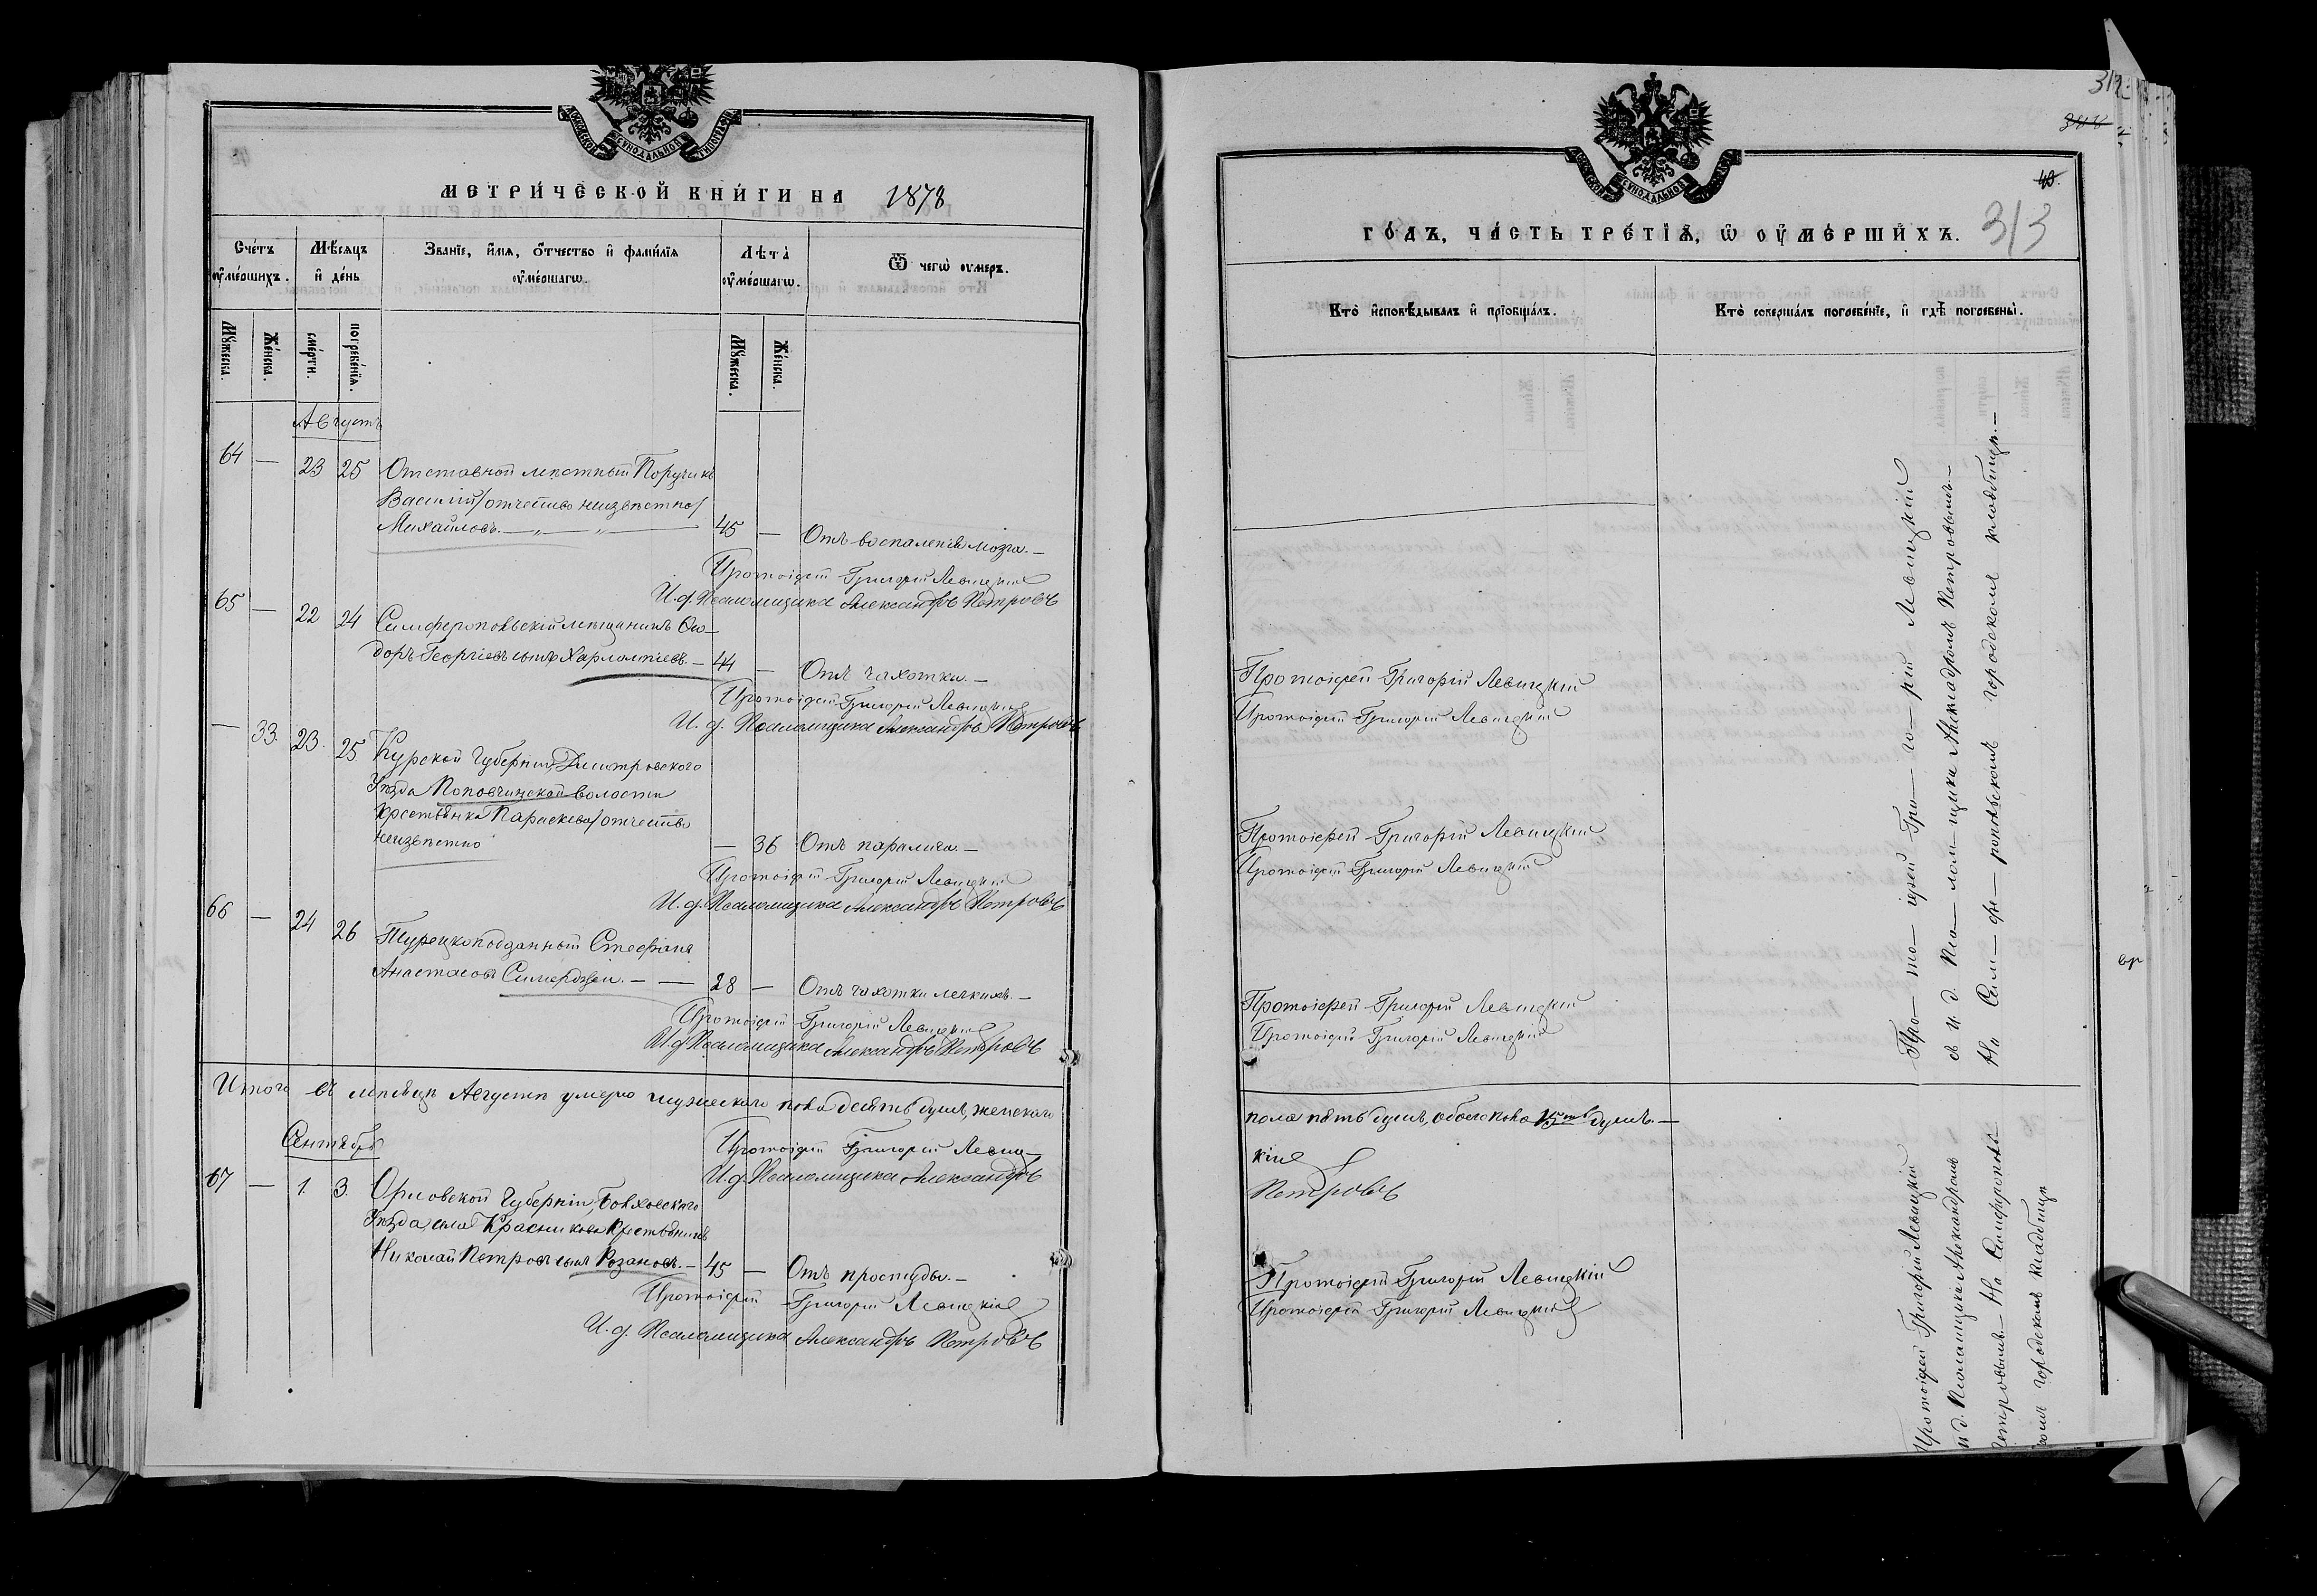 МОСКОВСКОЙ СУНОДАЛЬНОЙ ТИПОГРАФІИ
МЕТРИ́ЧЕСКОЙ КНИ́ГИ НА 1878
Сче́тъ ᲂу҆ме́ршихъ.
Мѣ́сяцъ и҆ де́нь
Зва́нїе, и҆́мя, ѻ҆́тчество и҆ фами́лїя ᲂу҆ме́ршагѡ.
Лѣ́та ᲂу҆ме́ршагѡ.
Ѿ чегѡ̀ ᲂу҆меръ.
Мꙋ́жеска.
Же́нска.
сме́рти.
погребе́нїя.
Мꙋ́жеска.
Же́нска.
Августъ
64 — 23 25 Отставной мѣстный Поручикъ
Василій /отчество неизвѣстно/
Михайловъ. — „ — „ — 45 — Отъ воспаленія мозга. —
Протоіерей Григорій Левицкій
И. д. Псаломщика Александръ Петровъ
65 — 22 24 Симферопольскій мѣщанинъ Ѳео-
доръ Георгіевъ сынъ Харлампіевъ. — 44 — Отъ чахотки. —
Протоіерей Григорій Левицкій
И. д. Псаломщика Александръ Петровъ
— 33. 23. 25 Курской Губерніи, Дмитровского
Уѣзда Поповчинской волости
Крестьянка Параскева /отчество
неизвѣстно — 36 Отъ паралича. —
Протоіерей Григорій Левицкій
И. д. Псаломщика Александръ Петровъ
66 — 24 26 Турецкоподданный Стефанъ
Анастасовъ — — 28 — Отъ чахотки легкихъ. —
Протоіерей Григорій Левицкій
И. д. Псаломщика Александръ Петровъ
Итого въ мѣсяцѣ Августѣ умерло мужескаго пола десять душъ, женскаго
Сентябрь
Протоіерей Григорій Левиц-
И. д. Псаломщика Александръ
67 — 1. 3. Орловской Губерніи, Болховскаго
Уѣзда, села Красникова Крестьянинъ
Николай Петровъ сынъ Розановъ. — 45 — Отъ простуды. —
Протоіерей Григорій Левицкій
И. д. Псаломщика Александръ Петровъ
312
40.
313
МОСКОВСКОЙ СУНОДАЛЬНОЙ ТИПОГРАФІИ
ГО́ДЪ, ЧА́СТЬ ТРЕ́ТЇѦ, Ѡ҆ ОУ҆МЕ́РШИХЪ.
Кто̀ и҆сповѣ́дывалъ и҆ прїѡбща́лъ.
Кто̀ соверша́лъ погребе́нїе, и҆ гдѣ̀ погребены̀.
Протоіерей Григорій Левицкій
Протоіерей Григорій Левицкій
Протоіерей Григорій Левицкій
Протоіерей Григорій Левицкій
Протоіерей Григорій Левицкій
Протоіерей Григорій Левицкій
Про— то— іерей Гри— го— рій Левицкій
съ И. д. Пса— лом— щика Александромъ Петровымъ. —
На Сим— фе— ропольскомъ городскомъ кладбищѣ. —
пола пять душъ, обоего пола 15ть душъ. —
кій
Петровъ
Протоіерей Григорій Левицкій
Протоіерей Григорій Левицкій
Протоіерей Григорій Левицкій
и д. Псаломщика Александромъ
Петровымъ. — На Симферополь-
скомъ городскомъ кладбищѣ